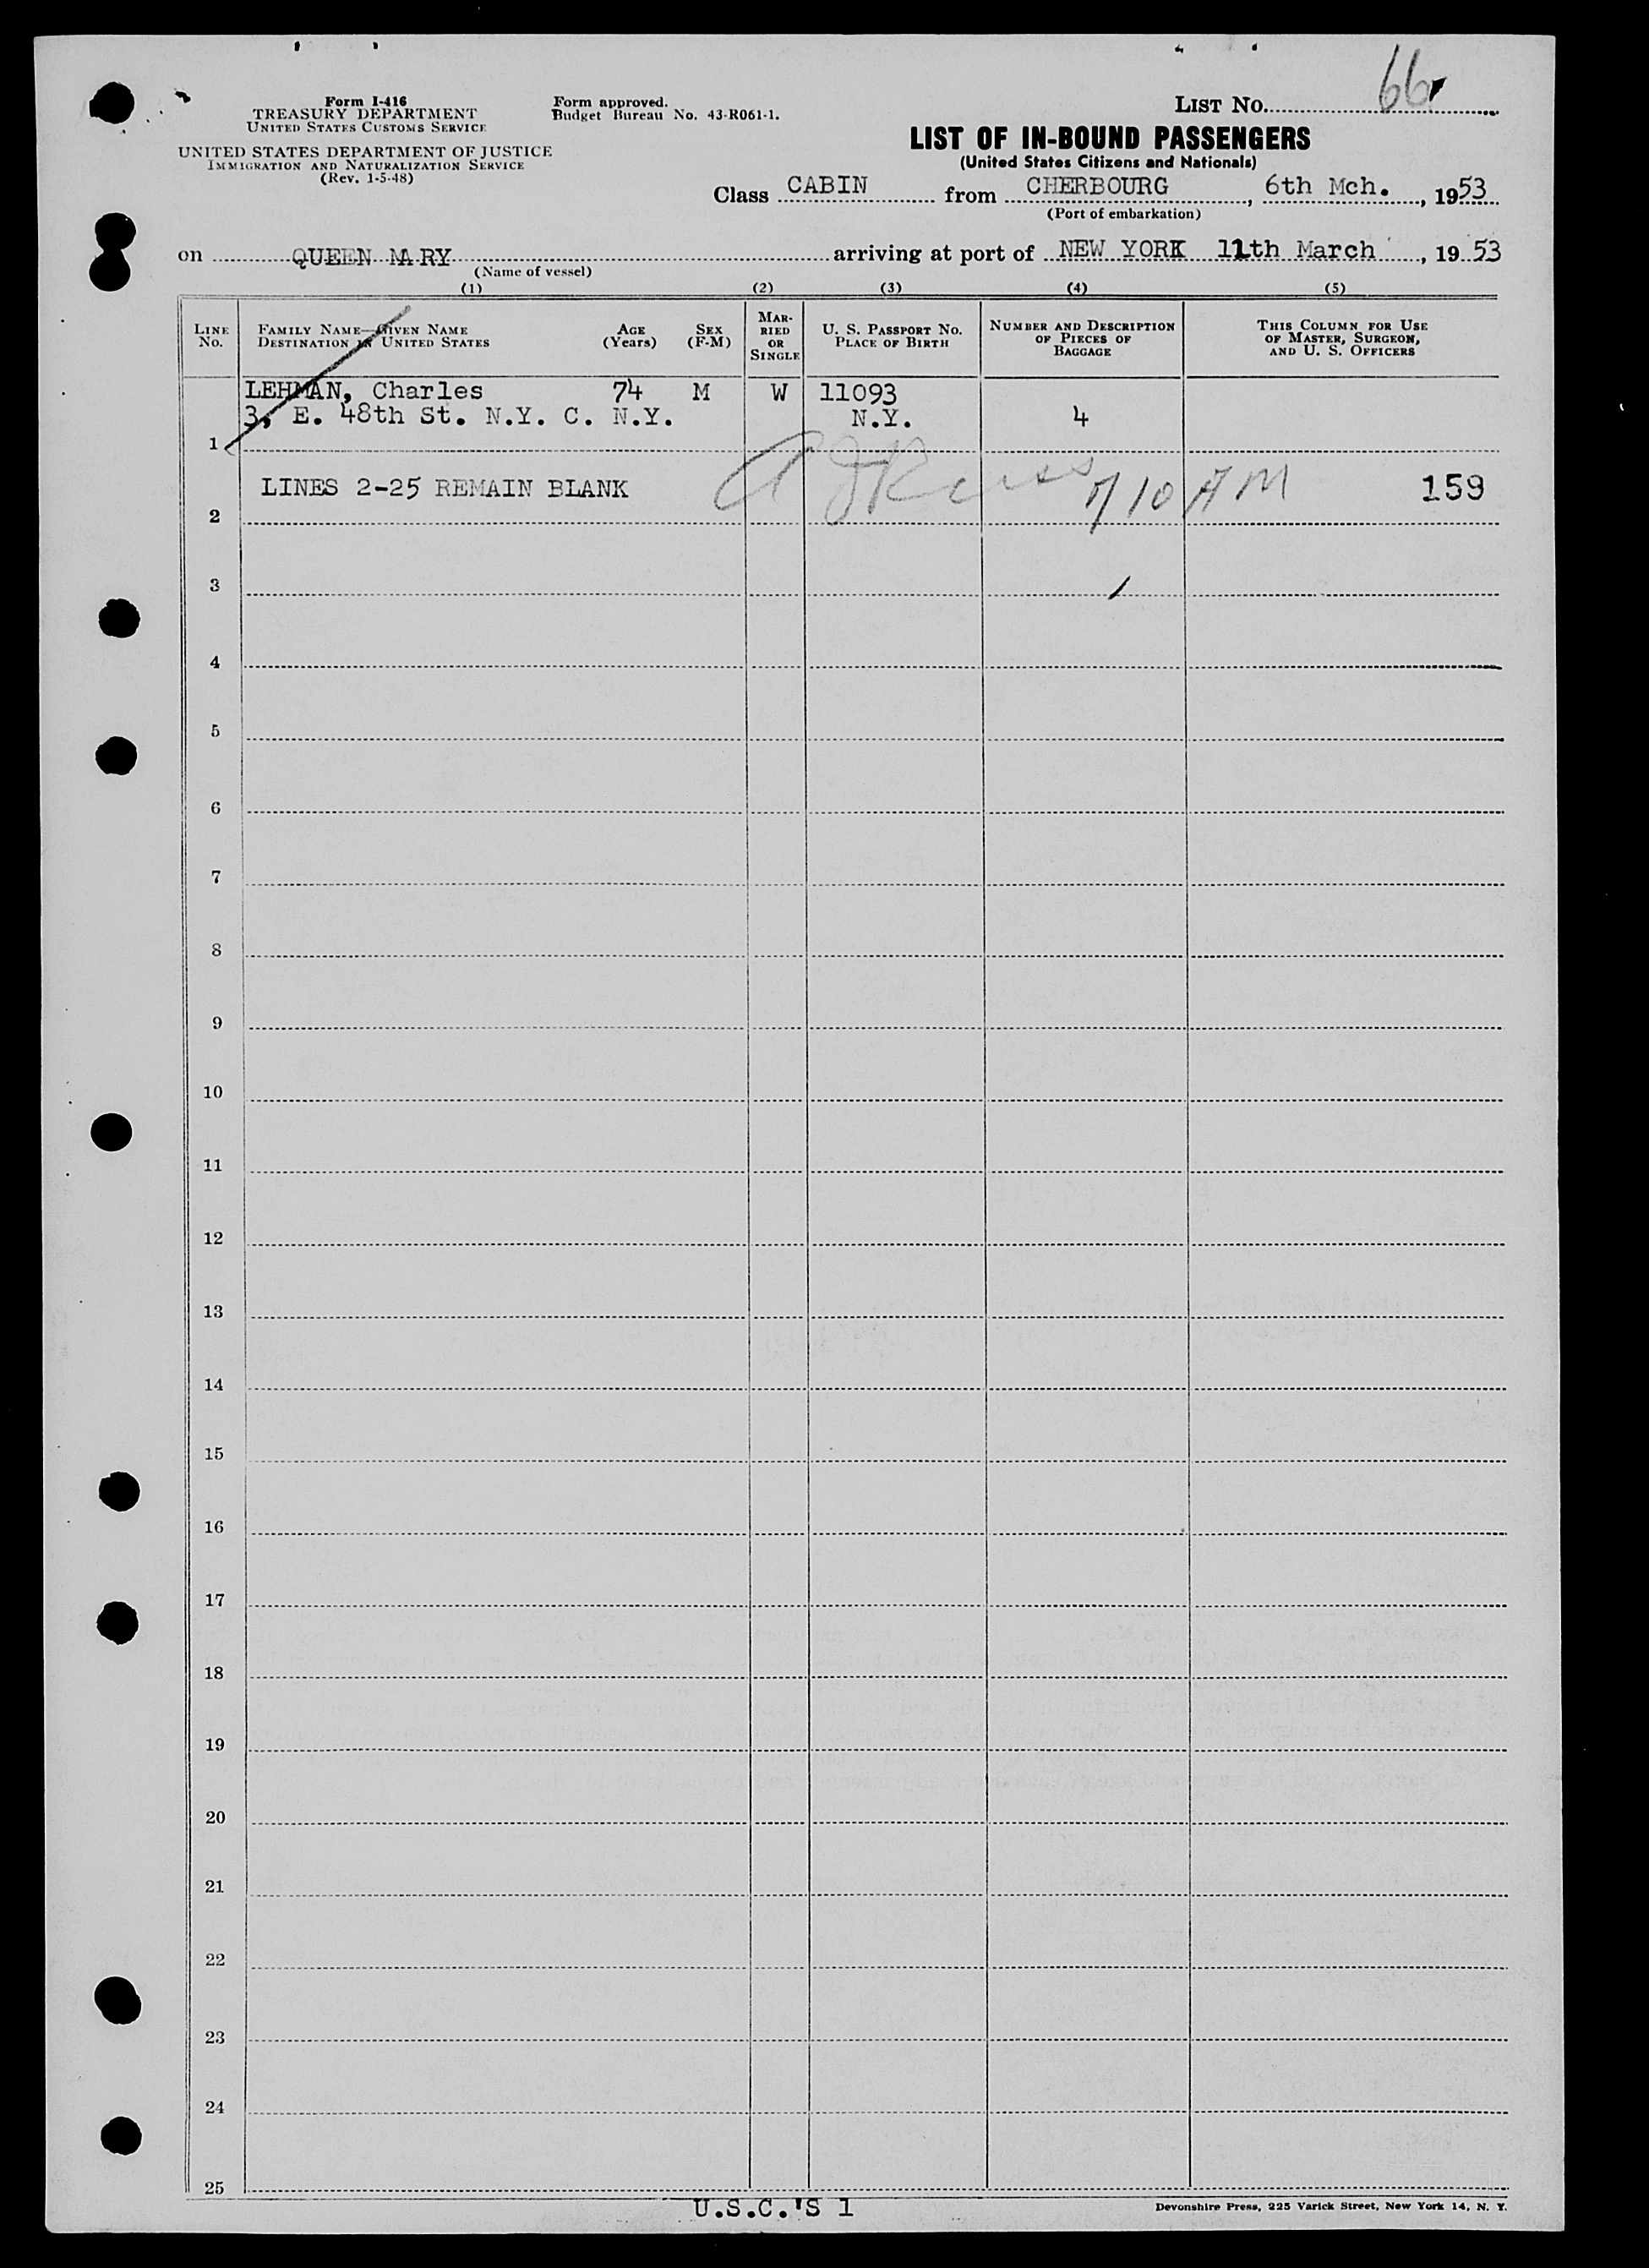 Form I-416
TREASURY DEPARTMENT
UNITED STATES CUSTOMS SERVICE
UNITED STATES DEPARTMENT OF JUSTICE
IMMIGRATION AND NATURALIZATION SERVICE
(Rev. 1-5-48)
Form approved.
Budget Bureau No. 43-R061-1.
LIST No. 66
LIST OF IN-BOUND PASSENGERS
(United States Citizens and Nationals)
Class CABIN from CHERBOURG, 6th Mch., 1953
(Port of embarkation)
on QUEEN MARY arriving at port of NEW YORK 11th March, 1953
(Name of vessel)
(1) (2) (3) (4) (5)
LINE No.
FAMILY NAME—GIVEN NAME
DESTINATION IN UNITED STATES
AGE (Years)
SEX (F-M)
MAR-RIED OR SINGLE
U. S. PASSPORT No.
PLACE OF BIRTH
NUMBER AND DESCRIPTION OF PIECES OF BAGGAGE
THIS COLUMN FOR USE OF MASTER, SURGEON, AND U. S. OFFICERS
LEHMAN, Charles 74 M W 11093
3, E. 48th St. N.Y. C. N.Y. N.Y. 4
1
LINES 2-25 REMAIN BLANK 10 AM 159
2
3
4
5
6
7
8
9
10
11
12
13
14
15
16
17
18
19
20
21
22
23
24
25
U.S.C.'S 1
Devonshire Press, 225 Varick Street, New York 14, N. Y.